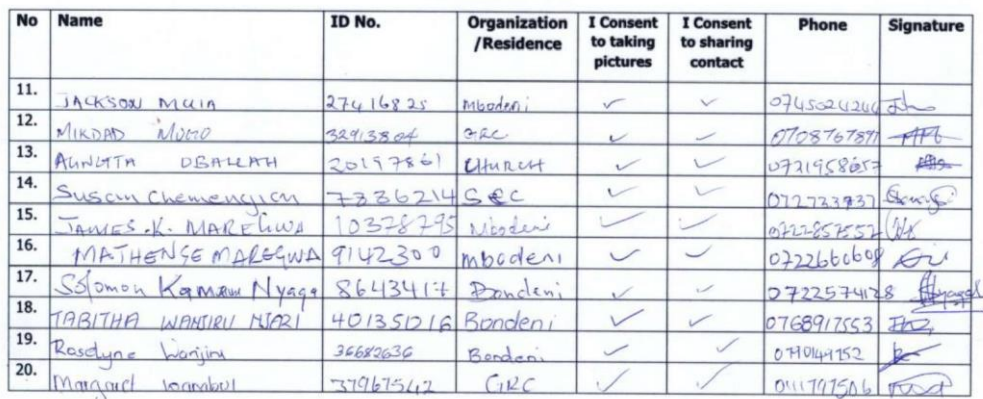 No Name ID No. Organization /Residence I Consent to taking pictures I Consent to sharing contact Phone Signature
11. JACKSON MUIA 27416825 Mbodeni ✓ ✓
12. MIKDAD 32913804 GRC ✓ ✓ 0708767871
13. 20197861 CHURCH ✓ ✓ 0721958657
14. Susan Chemengich 7336214 ✓ ✓ 072733937
15. JAMES .K. MAREGWA 10378795 Mbodeni ✓ ✓ 0722857552
16. MATHENGE MAREGWA 9142300 mbodeni ✓ ✓ 0722666608
17. Solomon Kamau Nyaga 8643417 Bondeni ✓ ✓ 0722574128
18. TABITHA WANJIRU NJARI 40135016 Bondeni ✓ ✓ 0768917553
19. Roselyne Wanjiru 36682636 Bondeni ✓ ✓
20. Margaret 37967542 GRC ✓ ✓ 0111797506